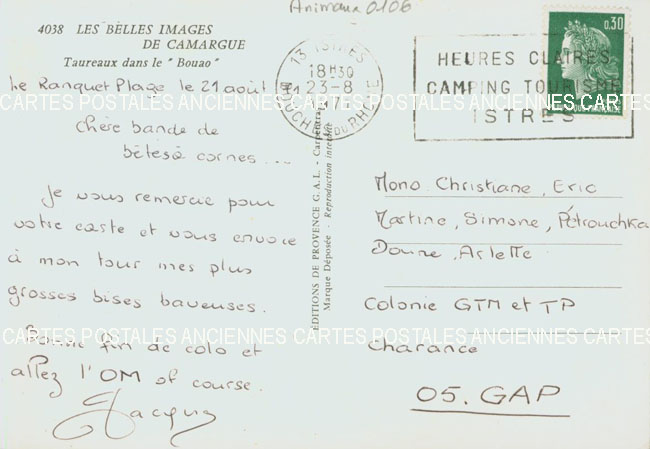 Animaux 0106
4038 LES BELLES IMAGES
DE CAMARGUE
Taureaux dans le "Bouao"
Le Ranquet Plage le 21 août 71
Chère bande de
bêtes à cornes...
Je vous remercie pour
votre carte et vous envoie
à mon tour mes plus
grosses bises baveuses.
Bonne fin de colo et
allez l'OM of course.
Jacquy
ÉDITIONS DE PROVENCE G.A.L. - Carpentras
Marque Déposée - Reproduction interdite
13 ISTRES
18H30
23-8
BOUCHES DU RHONE
HEURES CLAIRES
CAMPING TOURISME
ISTRES
0,30
Mono Christiane, Eric
Martine, Simone, Pétrouchka
Donne, Arlette
Colonie GTM et TP
Charance
05. GAP
CARTES POSTALES ANCIENNES CARTES POSTALES ANCIENNES CARTES
CARTES POSTALES ANCIENNES CARTES POSTALES ANCIENNES CARTES